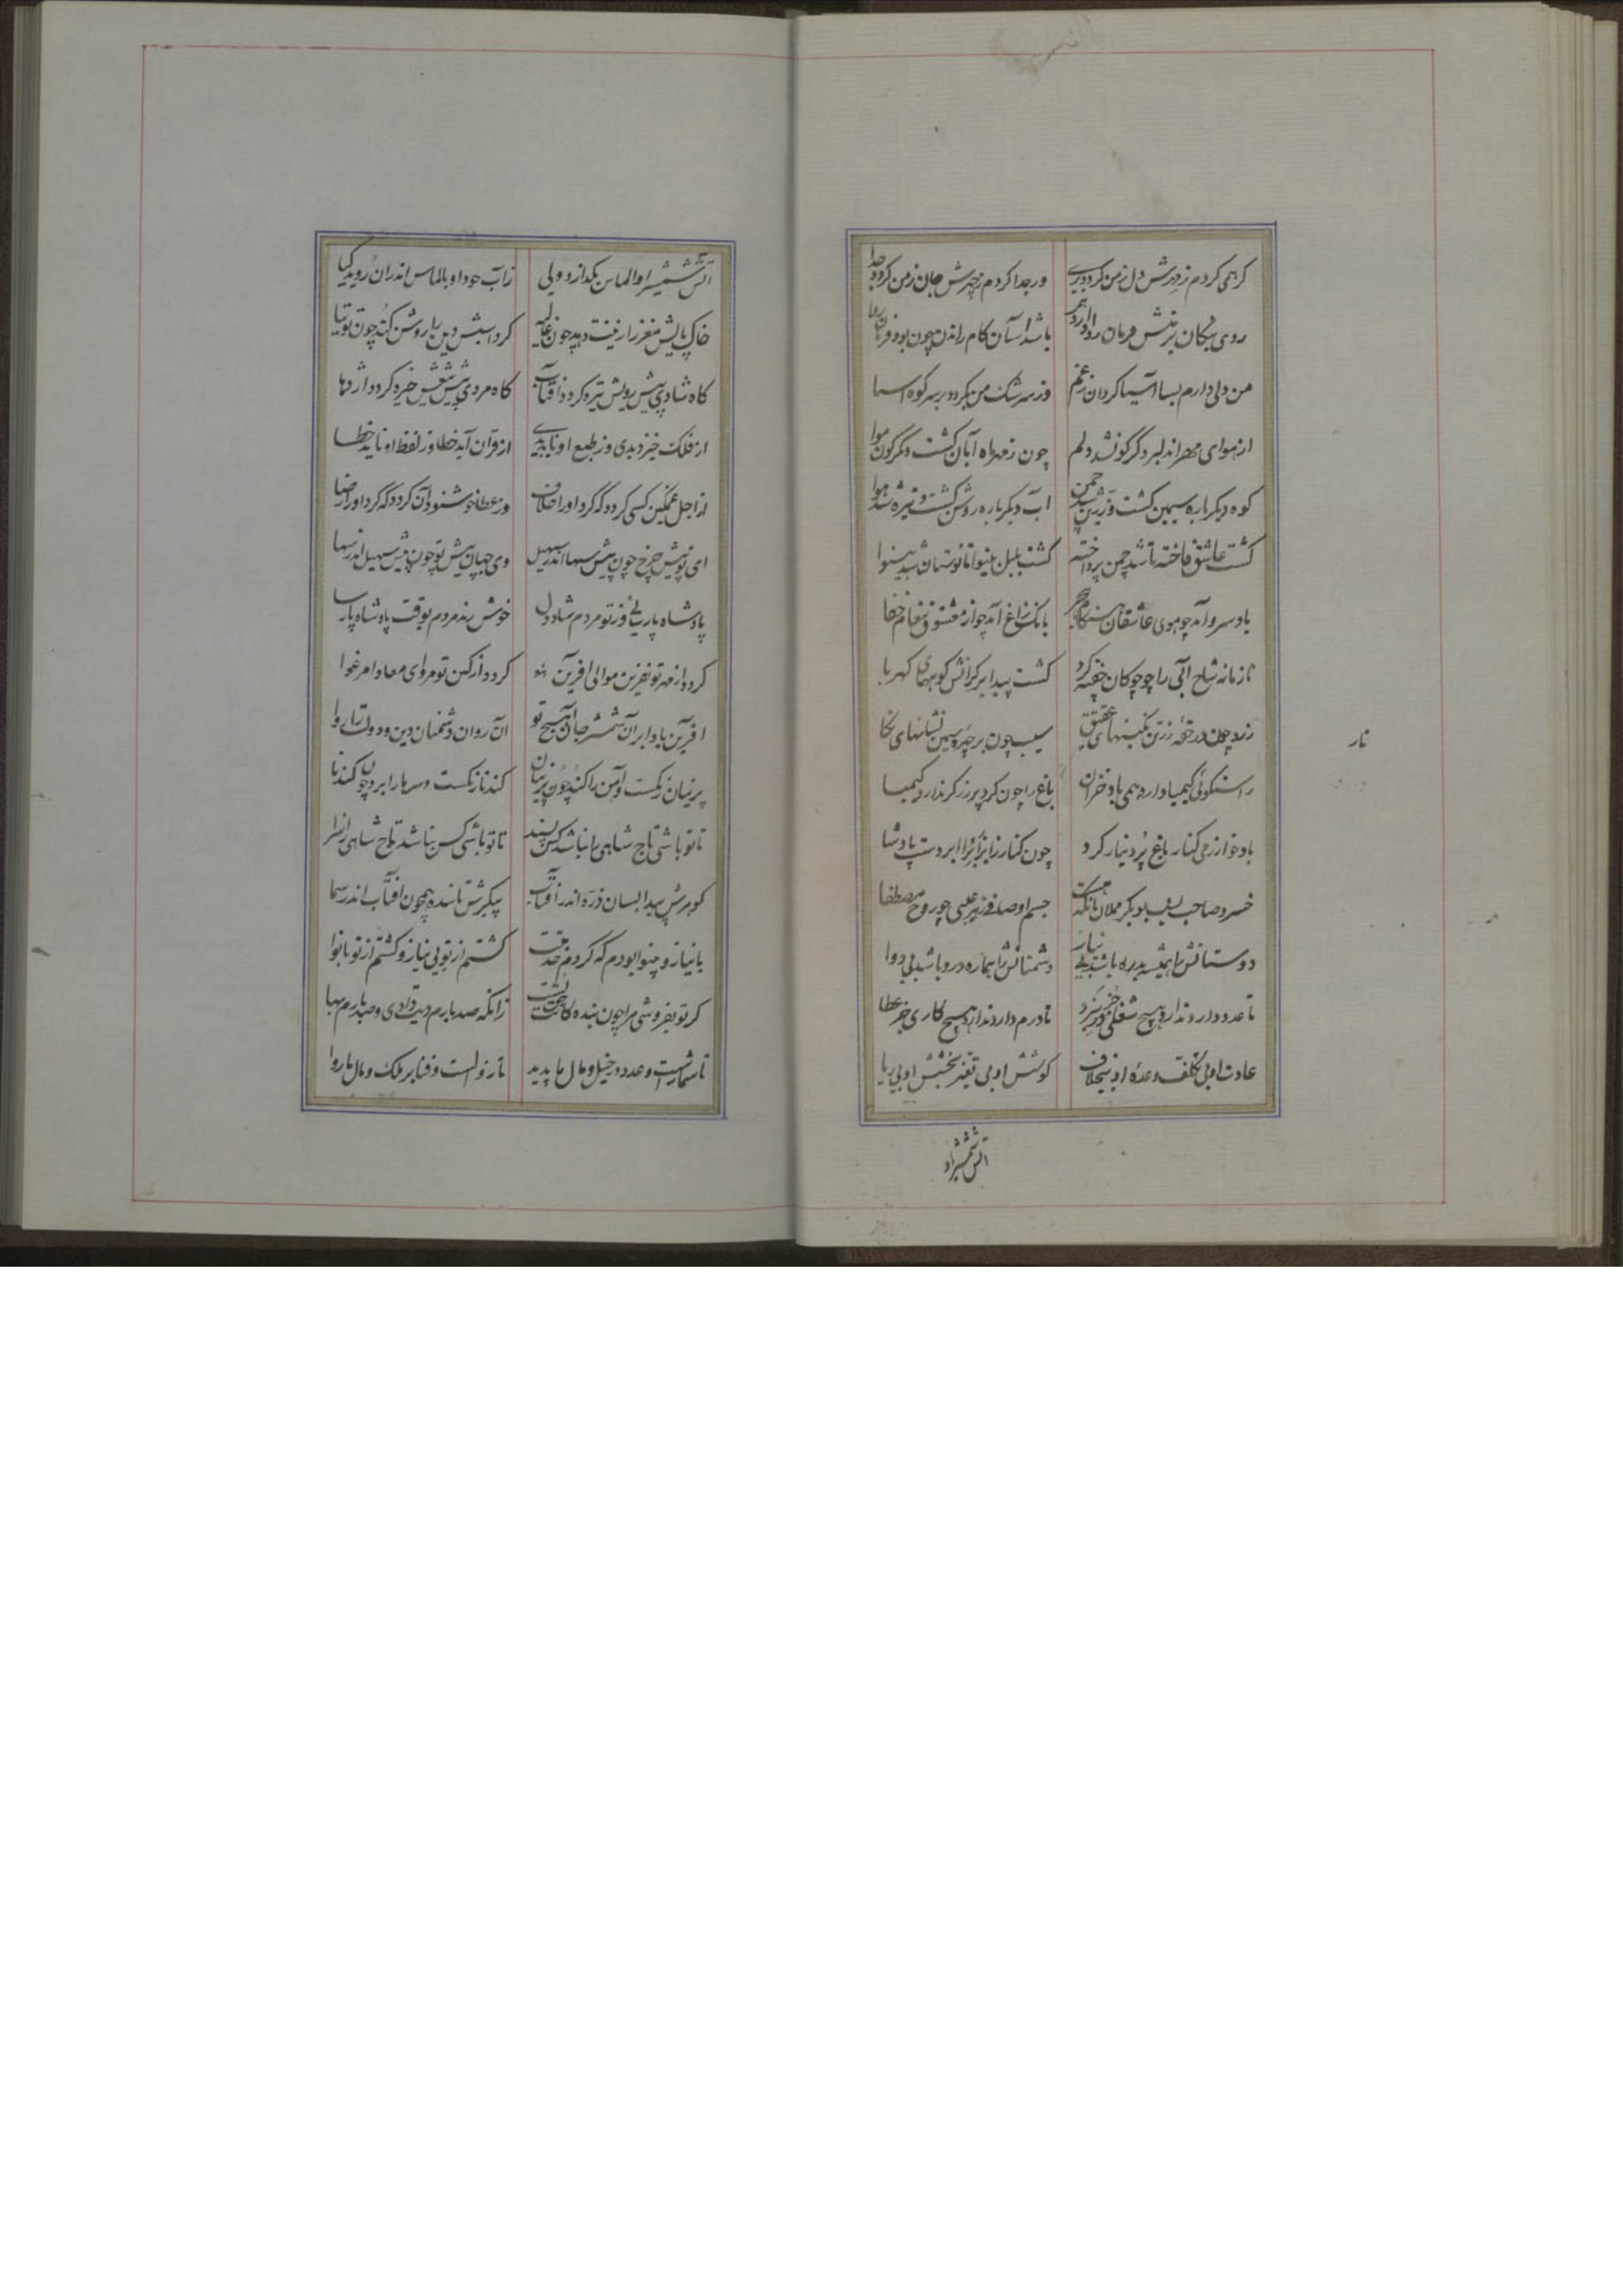 گر همی گردم ز مهرش دل ز من گردد بری
ور جدا گردم ز چهرش جان ز من گردد جدا
روی نیکان بر تنش فرمان روا دارد همی
باشد آسان کام راندن چون بود فرمان روا
من دلی دارم بسان آسیا گردان ز غم
وز سرشک من بگردد بر سر کوه آسیا
از هوای مهر آن دلبر دگرگون شد دلم
چون ز مهر ماه آبان گشت دیگرگون هوا
کوه دیگر باره سیمین گشت و زرین شد چمن
آب دیگر باره روشن گشت و تیره شد هوا
گشت عاشق فاخته تا شد چمن پرداخته
گشت بلبل بینوا تا بوستان شد بینوا
باد سرد آمد چو هوی عاشقان هنگام هجر
بانگ زاغ آمد چو از معشوق پیغام جفا
تا زمانه شاخ آبی را چو چوگان خفته کرد
گشت پیدا بر کرانش گویهای کهربا
زرد چون در حقه زرین نگینهای عقیق
سیب چون بر چهره سیمین نشانهای بکا
نار
راستگوئی کیمیا دارد همی باد خزان
باغ را چون کرد پر زر گر ندارد کیمیا
باد خوارزمی کنار باغ پر دینار کرد
چون کنار زایران را ابر دست پادشا
خسرو صاحب بو بکر مملان آنکه هست
جسم او صافی ز هر عیبی چو روح مصطفا
دوستانش را همیشه بدره باشد بی نیاز
دشمنانش را هماره درد باشد بی دوا
تا عدد دارد ندارد هیچ شغلی جز نبرد
تا درم دارد ندارد هیچ کاری جز عطا
عادت او بی تکلف وعده او بیخلاف
کوشش او بی تغیر بخشش او بی ریا
آتش شمشیر او
آتش شمشیر او الماس بگدازد ولی
زآب جود او بالماس اندران روید گیا
خاک پایش مغز را زینت دهد چون غالیه
گرد اسبش دیده را روشن کند چون توتیا
گاه شادی پیش رویش تیره گردد آفتاب
گاه مردی پیش تیغش خیره گردد اژدها
از فلک خیزد بدی وز طبع او ناید بدی
از قران آید خطا وز لفظ او ناید خطا
از اجل غمگین کسی گردد که گردد او را خلاف
وز عطا خوشنود آن گردد که گردد او را رضا
ای تو پیش چرخ چون پیش سها اندر سهیل
وی جهان پیش تو چون پیش سهیل اندر سها
پادشاه پار یخ وز تو مردم شاد دل
خوش زند مردم بوقت پادشاه پارسا
گردد از مهر تو نفرین موالی آفرین
گردد از کین تو مروای معادا مرغوا
آفرین باد ابر آن شمشیر جان آهیج تو
آن روان دشمنان دین و دولت را روا
پرنیان رنگست و آهن را کند چون پرنیان
گندنا رنگست و سرها را برد چون گندنا
تا تو باشی تاج شاهی را نباشد کس پسند
تا تو باشی کس نباشد تاج شاهی را سزا
گوهرش پیدا بسان ذره اندر آفتاب
پیکرش تابنده همچون آفتاب اندر سما
با نیاز و بینوا بودم که کردم خدمتت
گشتم از تو بی نیاز و گشتم از تو با نوا
گر تو بفروشی مرا چون بنده کانت رواست
زانکه صد بارم دیت دادی و صد بارم بها
تا شمارست و عدد در خیل و مال ما پدید
تا زوالست و فنا بر ملک و مال ما روا